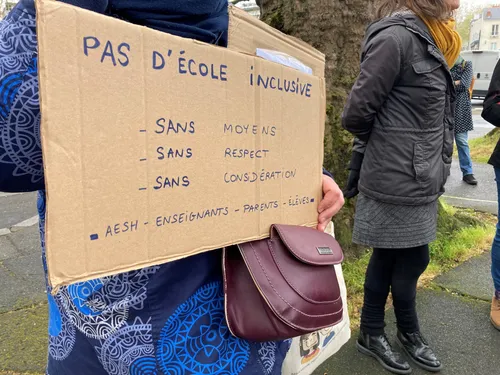 PAS D'ÉCOLE INCLUSIVE
- SANS MOYENS
- SANS RESPECT
- SANS CONSIDÉRATION
▪ AESH - ENSEIGNANTS - PARENTS - ELÈVES ▪